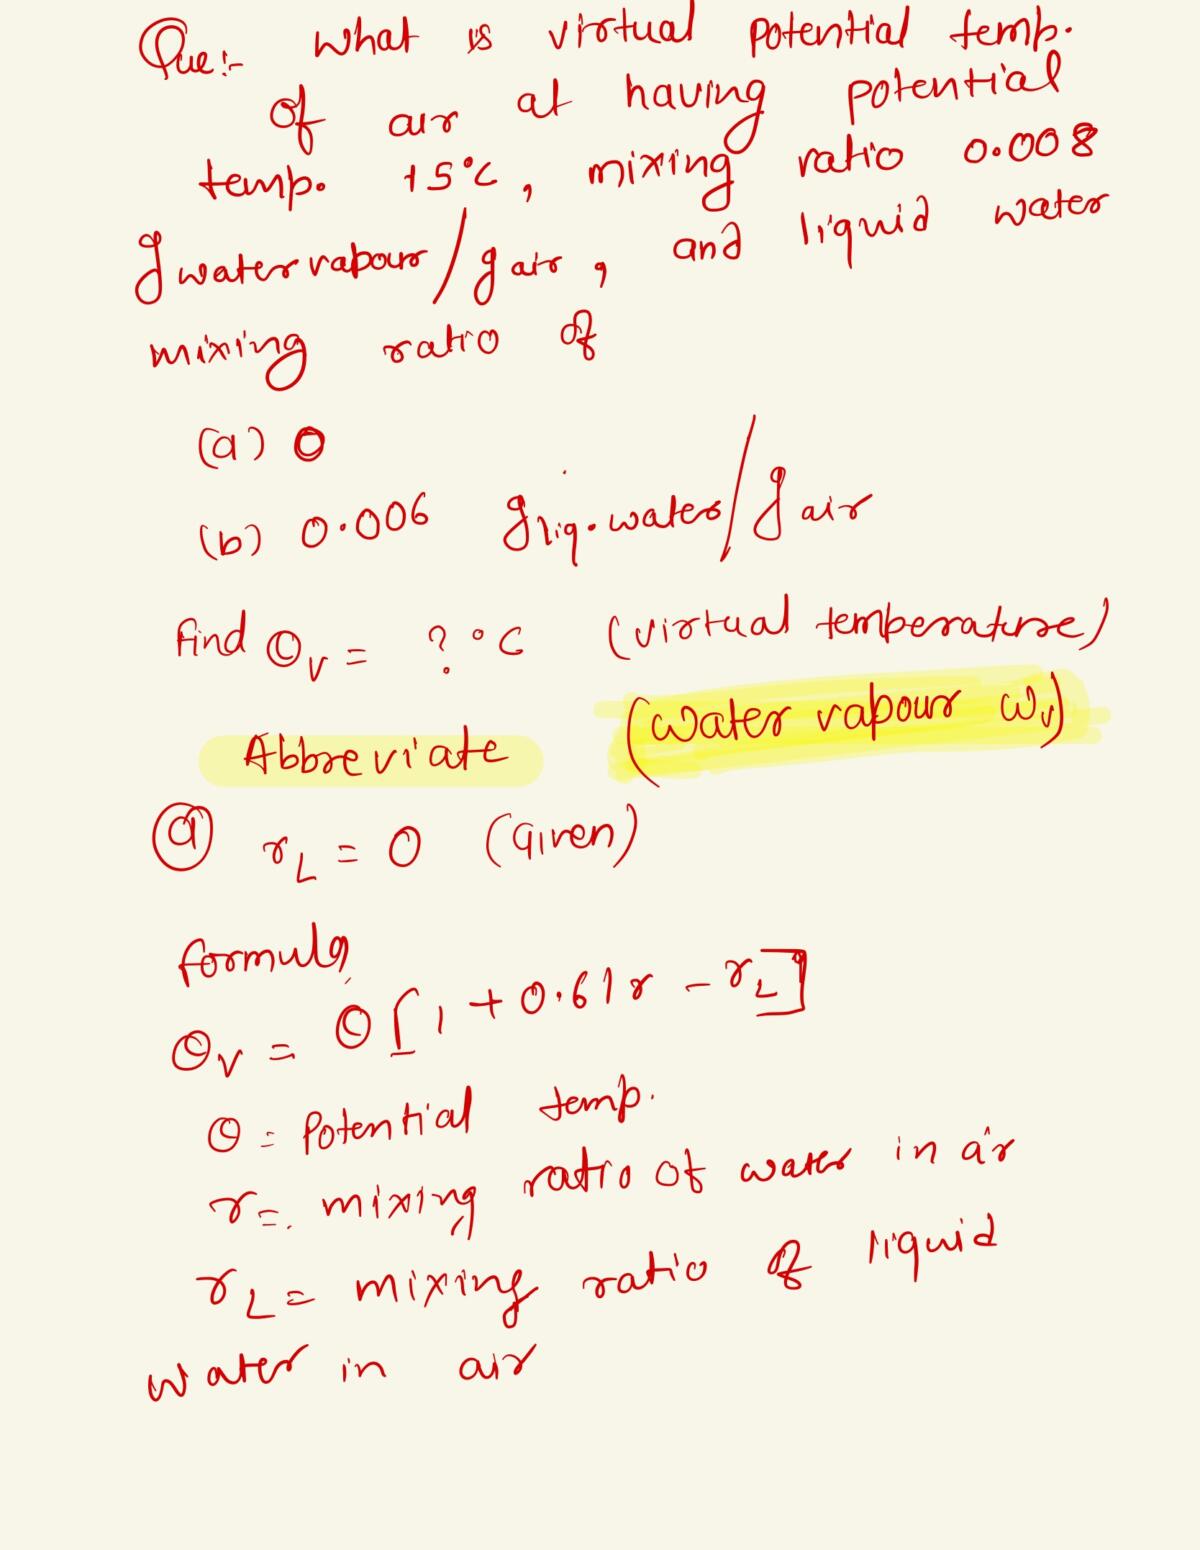 Que:- What is virtual potential temp.
of air at having potential
temp. 15°C, mixing ratio 0.008
g water vapour/g air, and liquid water
mixing ratio of
(a) 0
(b) 0.006 g liq. water/g air
Find Θv = ?°C (virtual temperature)
Abbreviate (water vapour wv)
(a) rL = 0 (Given)
formula,
Θv = Θ[1 + 0.61r - rL]
Θ = Potential temp.
r = mixing ratio of water in air
rL = mixing ratio of liquid
water in air